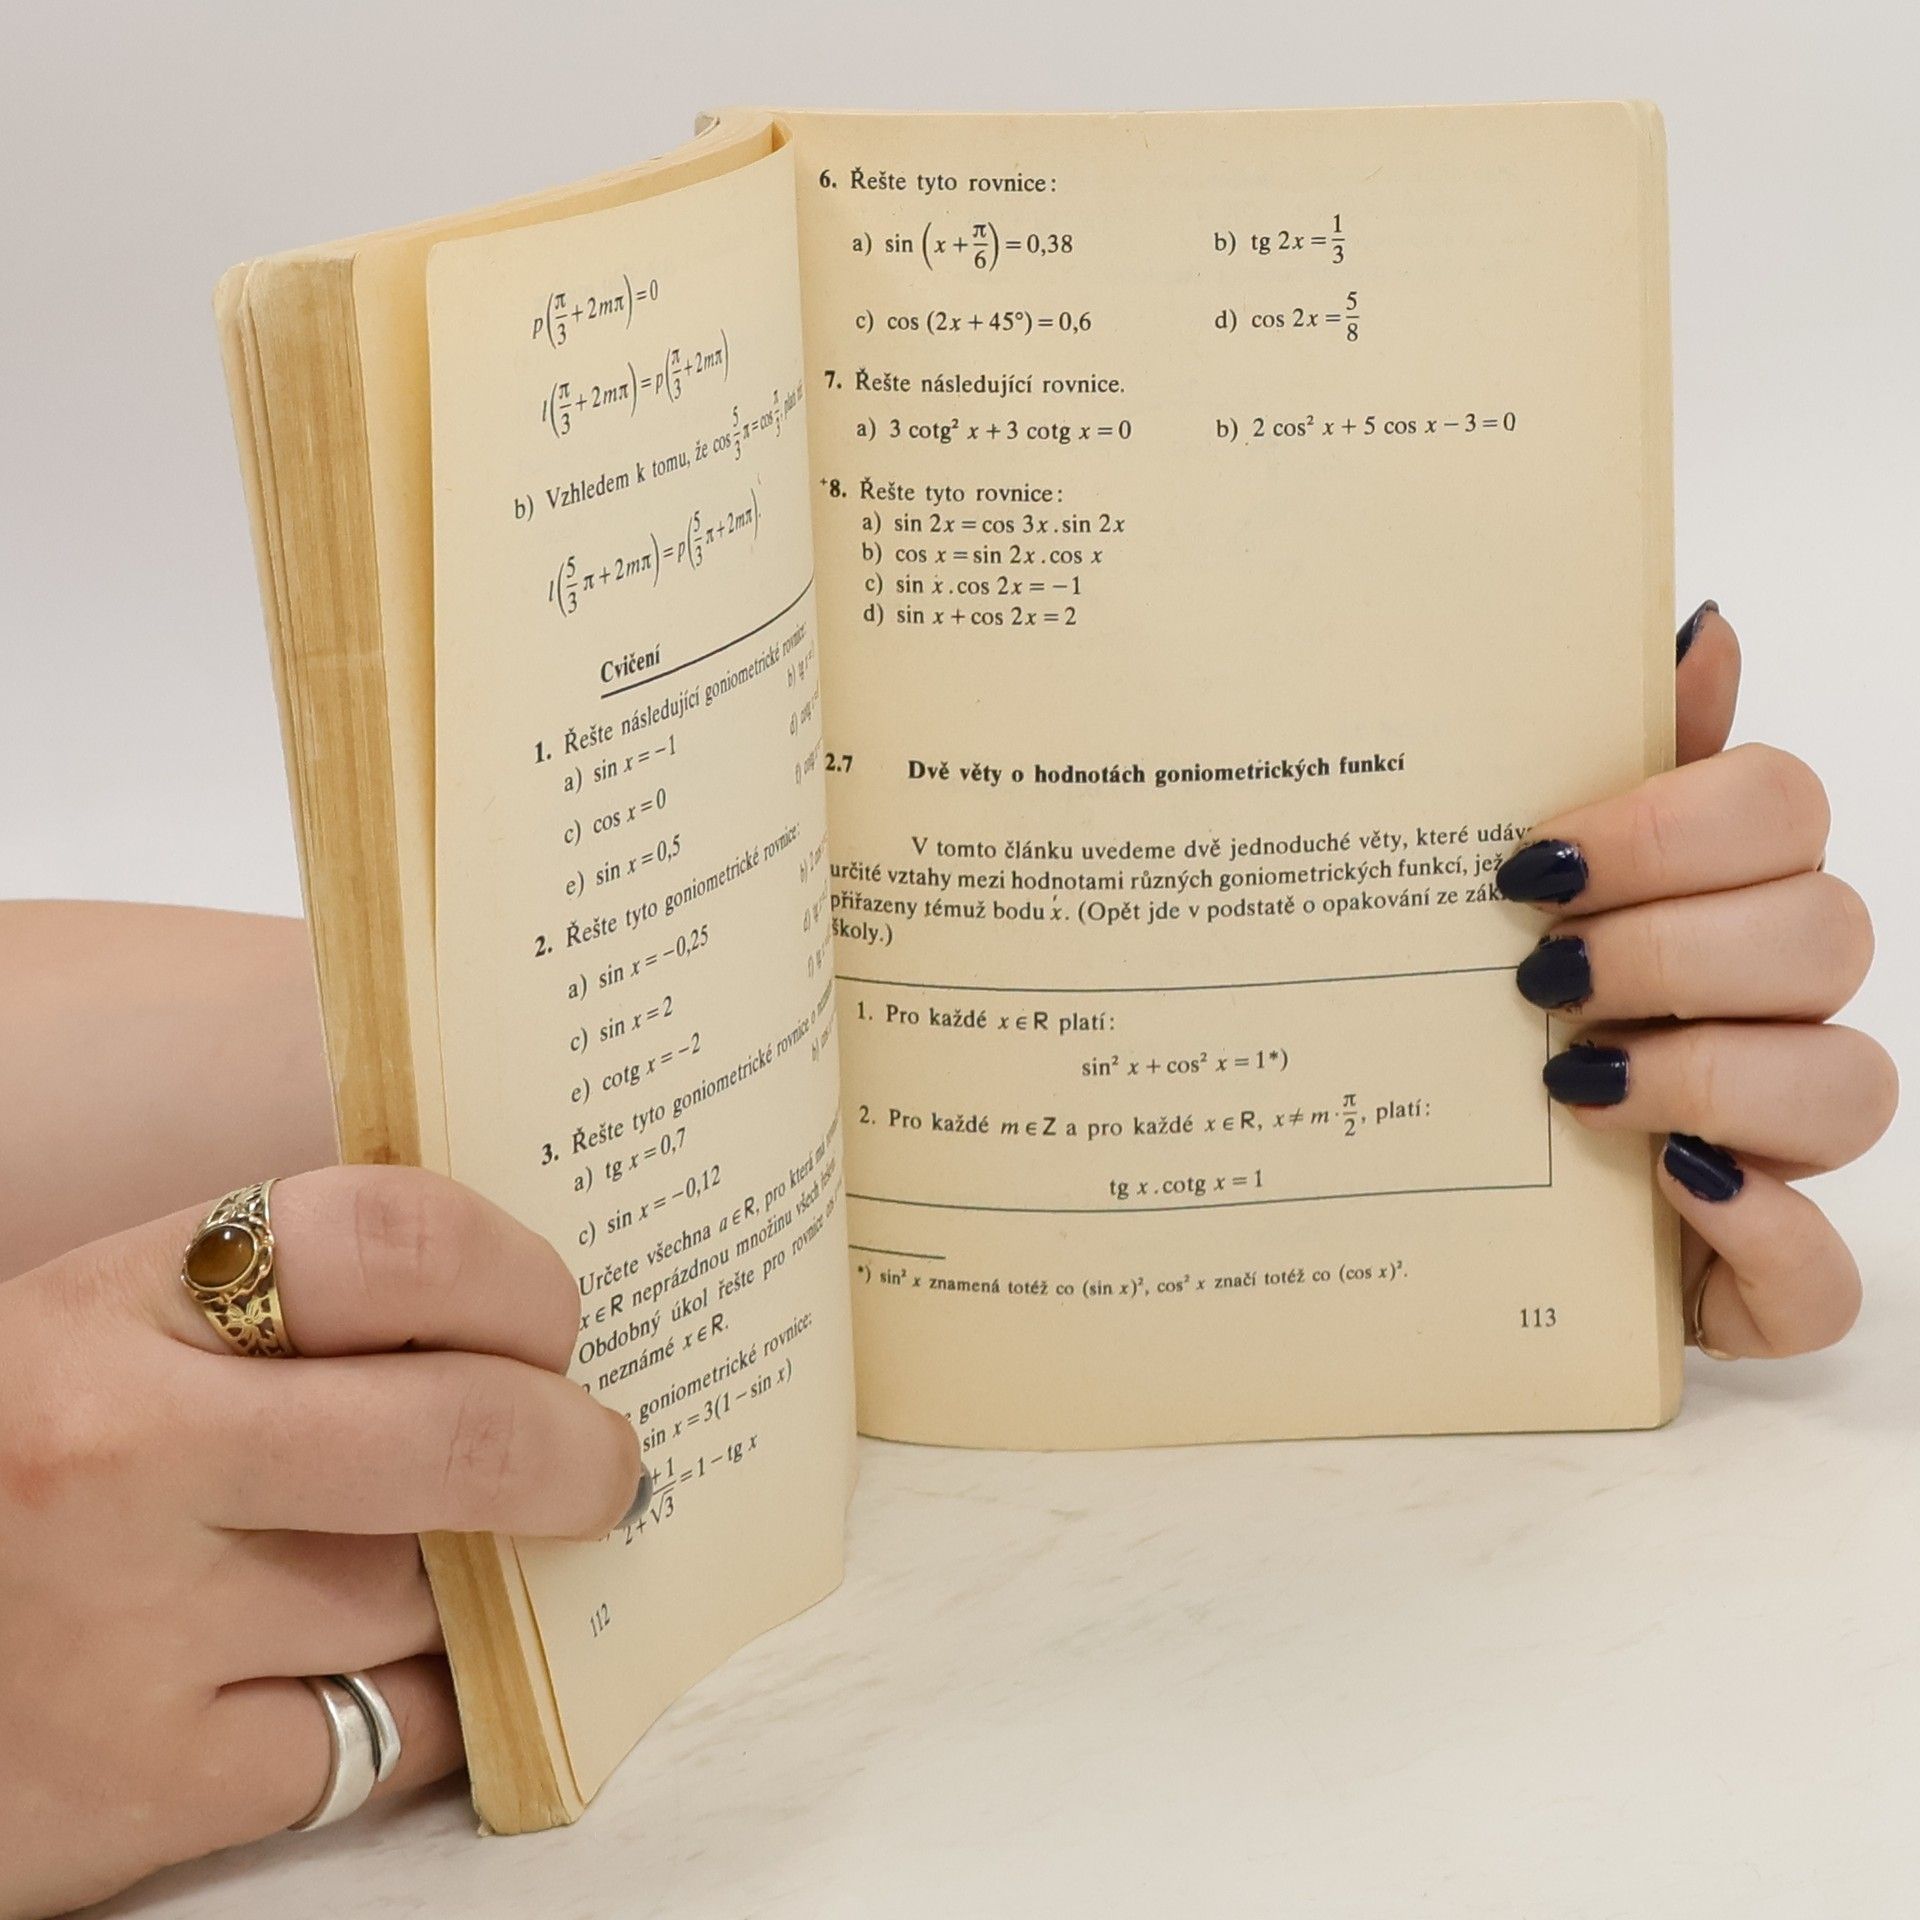 p(π/3+2mπ)=0
l(π/3+2mπ)=p(π/3+2mπ)
b) Vzhledem k tomu, že cos 5/3 π=cos π/3, platí
l(5/3 π+2mπ)=p(5/3 π+2mπ).
Cvičení
1. Řešte následující goniometrické rovnice:
a) sin x=−1 b) tg x=
c) cos x=0 d) cotg x=
e) sin x=0,5 f) cotg x=
2. Řešte tyto goniometrické rovnice:
a) sin x=−0,25 b) 2
c) sin x=2 d) tg
e) cotg x=−2 f) tg
3. Řešte tyto goniometrické rovnice o
a) tg x=0,7 b)
c) sin x=−0,12
Určete všechna a∈R, pro která má
x∈R neprázdnou množinu všech řešení.
Obdobný úkol řešte pro rovnice
neznámé x∈R.
goniometrické rovnice:
sin x=3(1−sin x)
+1/2+√3=1−tg x
112
6. Řešte tyto rovnice:
a) sin (x+π/6)=0,38 b) tg 2x=1/3
c) cos (2x+45°)=0,6 d) cos 2x=5/8
7. Řešte následující rovnice.
a) 3 cotg² x+3 cotg x=0 b) 2 cos² x+5 cos x−3=0
+8. Řešte tyto rovnice:
a) sin 2x=cos 3x.sin 2x
b) cos x=sin 2x.cos x
c) sin x.cos 2x=−1
d) sin x+cos 2x=2
2.7 Dvě věty o hodnotách goniometrických funkcí
V tomto článku uvedeme dvě jednoduché věty, které
určité vztahy mezi hodnotami různých goniometrických funkcí, jež
přiřazeny témuž bodu x. (Opět jde v podstatě o opakování ze
školy.)
1. Pro každé x∈R platí:
sin² x+cos² x=1*)
2. Pro každé m∈Z a pro každé x∈R, x≠m·π/2, platí:
tg x.cotg x=1
*) sin² x znamená totéž co (sin x)², cos² x značí totéž co (cos x)².
113